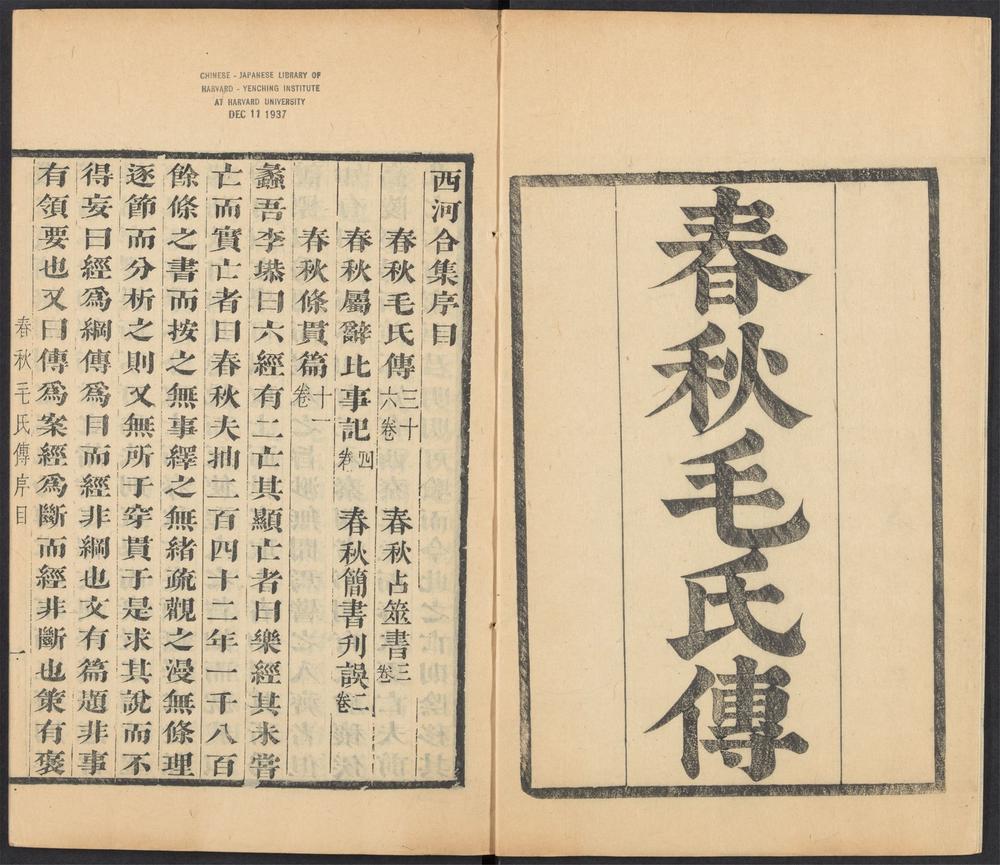 春秋毛氏傳
CHINESE - JAPANESE LIBRARY OF
HARVARD - YENCHING INSTITUTE
AT HARVARD UNIVERSITY
DEC 11 1937
西河合集序目
春秋毛氏傳三十六卷　春秋占筮書三卷
春秋屬辭比事記四卷　春秋簡書刋誤二卷
春秋條貫篇十一卷
蠡吾李塨曰六經有二亡其顯亡者曰樂經其未嘗
亡而實亡者曰春秋夫抽二百四十二年一千八百
餘條之書而按之無事繹之無緒疏觀之漫無條理
逐節而分析之則又無所于穿貫于是求其說而不
得妄曰經爲綱傳爲目而經非綱也文有篇題非事
有領要也又曰傳爲案經爲斷而經非斷也策有襃
春秋毛氏傳序目
一